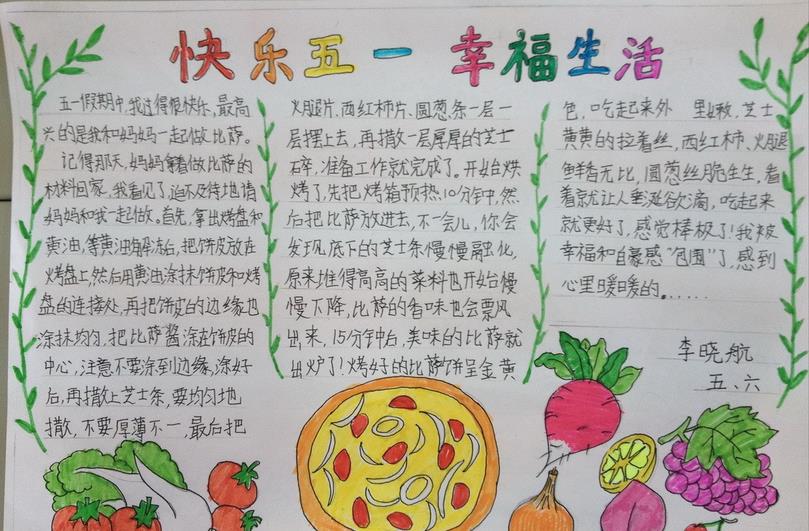 快乐五一 幸福生活
五一假期中,我过得很快乐,最高
兴的是我和妈妈一起做比萨。
记得那天,妈妈拿着做比萨的
材料回家,我看见了,迫不及待地请
妈妈和我一起做。首先,拿出烤盘和
黄油,等黄油解冻后,把饼皮放在
烤盘上,然后用黄油涂抹饼皮和烤
盘的连接处,再把饼皮的边缘也
涂抹均匀。把比萨酱涂在饼皮的
中心,注意不要涂到边缘,涂好
后,再撒上芝士条,要均匀地
撒,不要厚薄不一,最后把
火腿片、西红柿片、圆葱条一层一
层摆上去,再撒一层厚厚的芝士
碎,准备工作就完成了。开始烘
烤了,先把烤箱预热10分钟,然
后把比萨放进去,不一会儿,你会
发现底下的芝士条慢慢融化,
原来堆得高高的菜料也开始慢
慢下降,比萨的香味也会票风
出来,15分钟后,美味的比萨就
出炉了!烤好的比萨饼呈金黄
色,吃起来外 里嫩,芝士
黄黄的拉着丝,西红柿、火腿
鲜香无比,圆葱丝脆生生,看
着就让人垂涎欲滴,吃起来
就更好了,感觉棒极了!我被
幸福和自豪感“包围”了,感到
心里暖暖的......
李晓航
五、六